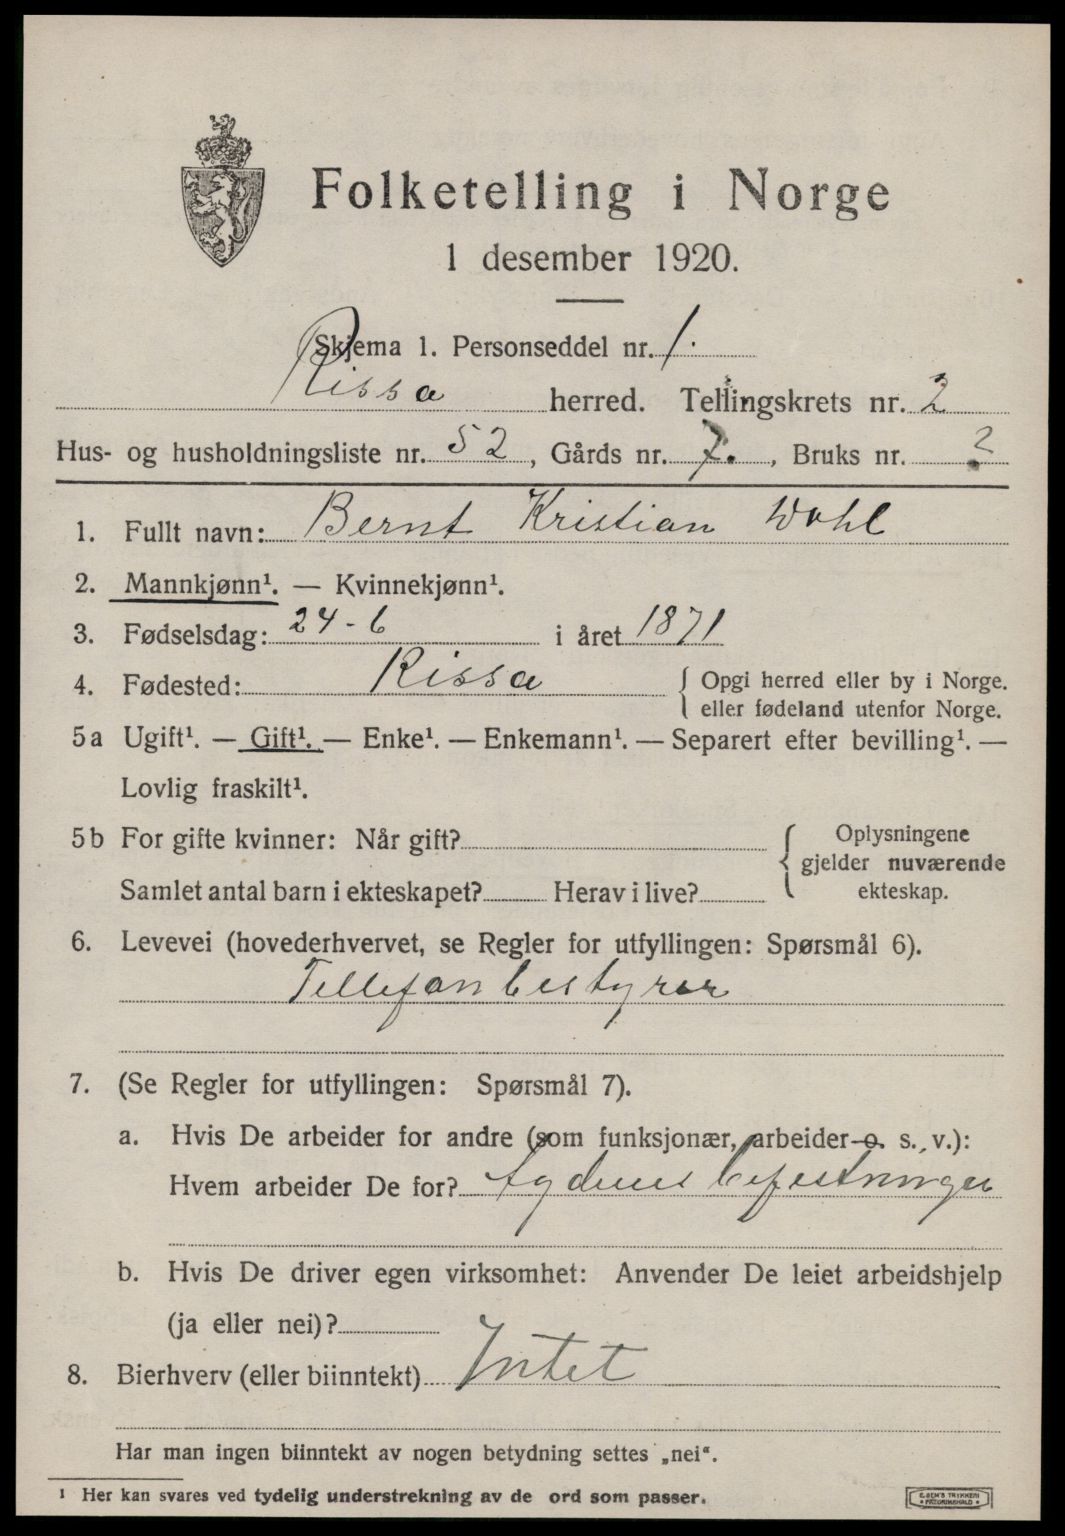 Folketelling i Norge
1 desember 1920.
Skjema 1. Personseddel nr. 1.
Rissa herred. Tellingskrets nr. 2
Hus- og husholdningsliste nr. 52, Gårds nr. 7., Bruks nr. ?
1. Fullt navn: Bernt Kristian Wohl
2. Mannkjønn¹. — Kvinnekjønn¹.
3. Fødselsdag: 24-6 i året 1871
4. Fødested: Rissa { Opgi herred eller by i Norge.
eller fødeland utenfor Norge.
5a Ugift¹. — Gift¹. — Enke¹. — Enkemann¹. — Separert efter bevilling¹. —
Lovlig fraskilt¹.
5b For gifte kvinner: Når gift?
Samlet antal barn i ekteskapet? Herav i live?
{ Oplysningene
gjelder nuværende
ekteskap.
6. Levevei (hovederhvervet, se Regler for utfyllingen: Spørsmål 6).
Tellefonbestyrer
7. (Se Regler for utfyllingen: Spørsmål 7).
a. Hvis De arbeider for andre (som funksjonær, arbeider o. s. v.):
Hvem arbeider De for? Agdenes befestninger
b. Hvis De driver egen virksomhet: Anvender De leiet arbeidshjelp
(ja eller nei)?
8. Bierhverv (eller biinntekt) Intet
Har man ingen biinntekt av nogen betydning settes „nei“.
¹ Her kan svares ved tydelig understrekning av de ord som passer.